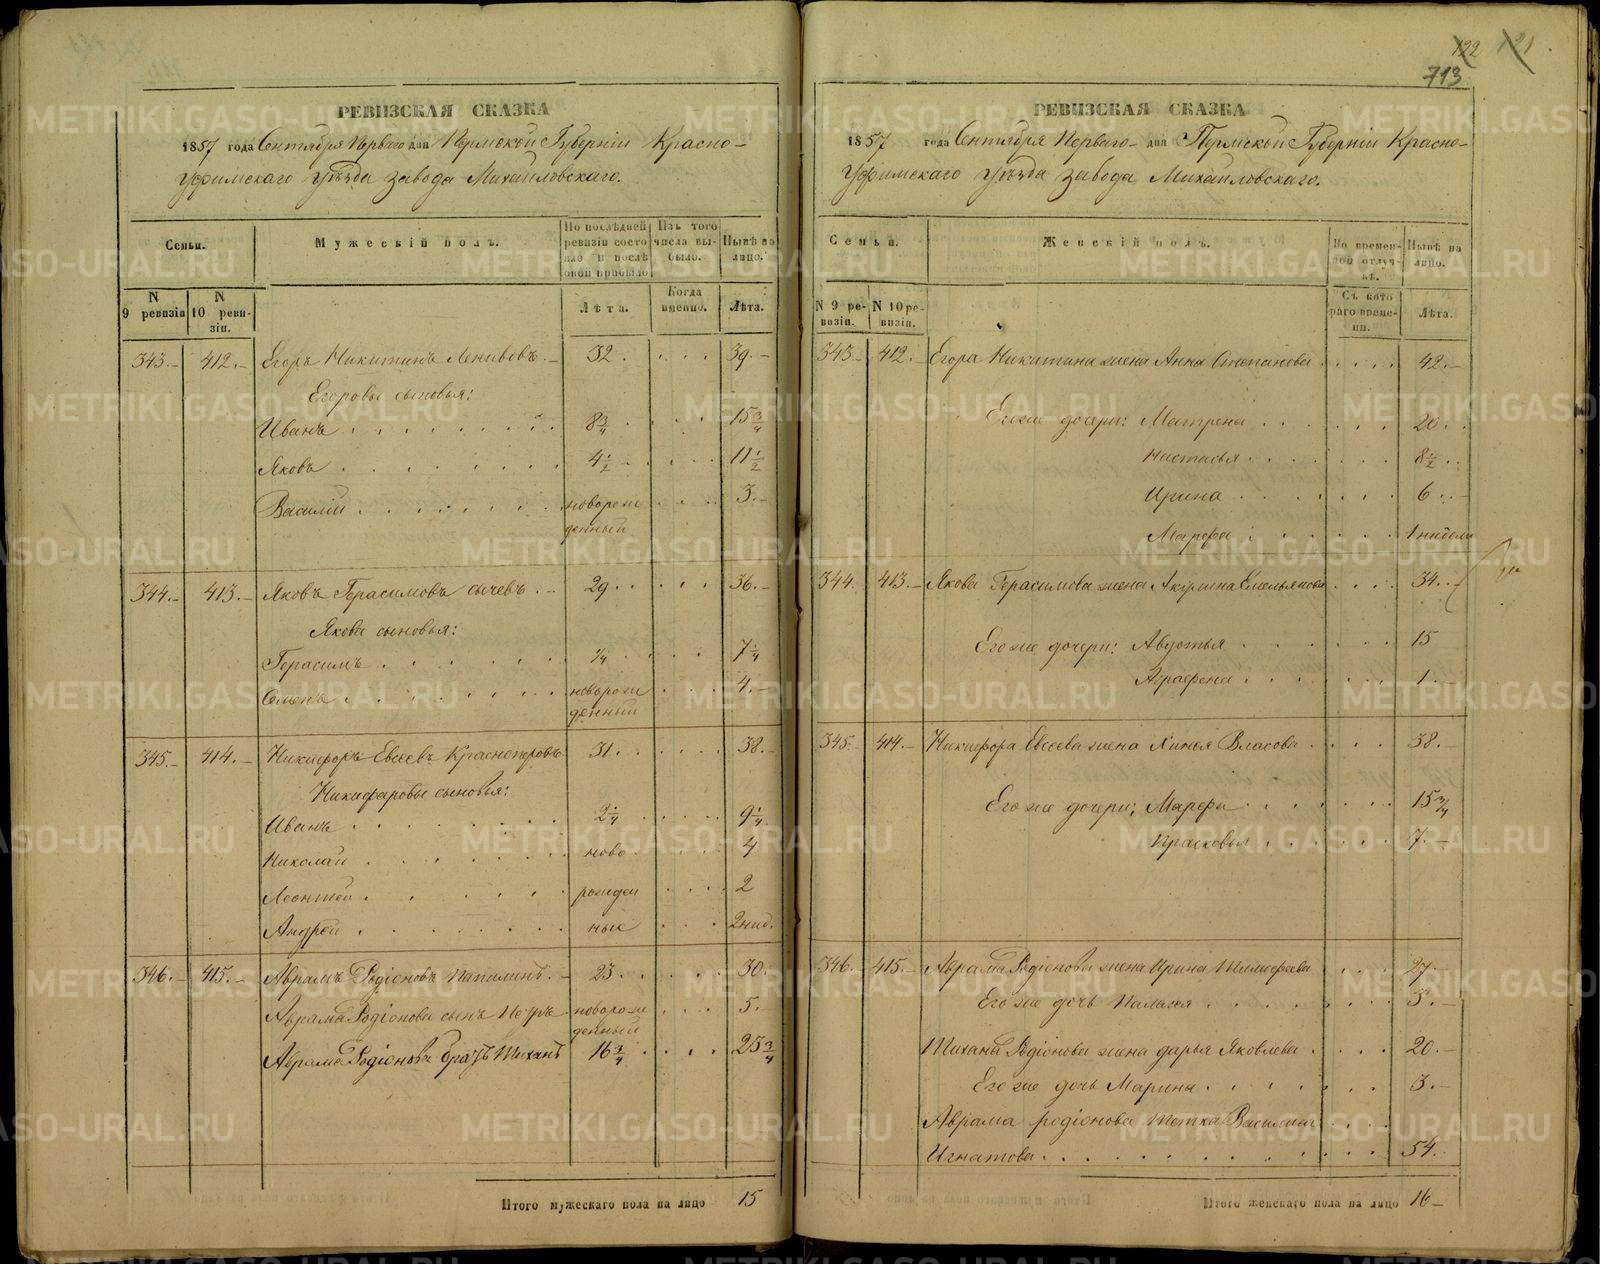 122 121
713
РЕВИЗСКАЯ СКАЗКА
1857 года Сентября Перваго дня Пермской Губерніи Красно-
Уфимскаго Уѣзда завода Михайловскаго.
Семьи.
Мужескій полъ.
По послѣдней ревизіи состояло и послѣ оной прибыло
Изъ того числа выбыло.
Нынѣ на лицо.
N 9 ревизіи
N 10 ревизіи.
Лѣта.
Когда именно.
Лѣта.
343.- 412.- Егоръ Никитинъ Лнивовъ.- 32. 39.-
Егоровы сыновья:
Иванъ 8 3/4 15 3/4
Яковъ 4 1/2 11 1/2
Василій новорож 3.-
денный
344.- 413.- Яковъ Герасимовъ сычевъ.- 29 36.-
Якова сыновья:
Герасимъ 1/4 7 1/4
Семенъ новорож 4.-
денный
345.- 414.- Никифоръ Евсеевъ Красноперовъ 31 38.-
Никифоровы сыновья:
Иванъ 2 1/4 9 1/4
Николай ново 4
Леонтей рожден 2
Андрей ные 2 нид.
346.- 415.- Аврамъ Родіоновъ Папилинъ.- 23 30.
Аврама Родіонова сынъ Петръ новорож 5.
денный
Аврама Родіонова братъ Тиханъ 16 3/4 23 3/4
Итого мужескаго пола на лицо 15
РЕВИЗСКАЯ СКАЗКА
1857 года Сентября Перваго- дня Пермской Губерніи Красно-
Уфимскаго Уѣзда завода Михайловскаго.
Семьи.
Женскій полъ.
Во временной отлучкѣ.
Нынѣ на лицо.
N 9 ревизіи.
N 10 ревизіи.
Съ котораго времени.
Лѣта.
343- 412. Егора Никитина жена Анна Степанова 42.-
Его же дочери: Матрена 20.
Настасья 8 1/2
Ирина 6
Марфа 1 нидели
344. 413.- Якова Герасимова жена Акулина Емельянова 34.
Его же дочери: Авдотья 15
Аграфена 1.-
345. 414- Никифора Евсеева жена Хинья Власова 38.-
Его же дочери; Марфа 15 3/4
Прасковья 7.-
346. 415- Аврама Родіонова жена Ирина Тимофеева 27.
Его же дочь Палагея 3.-
Тихана Родіонова жена дарья Яковлева 20.-
Его же дочь Марина 3.-
Аврама родіонова тетка Василиса
Игнатова 54.
Итого женскаго пола на лицо 16-
METRIKI.GASO-URAL.RU